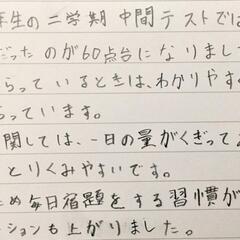 年生の二学期中間テストでは
だったのが60点台になりまし
らっているときは、わかりやす
らっています。
関しては、一日の量がくぎって
とりくみやすいです。
め毎日宿題をする習慣が
ションも上がりました。